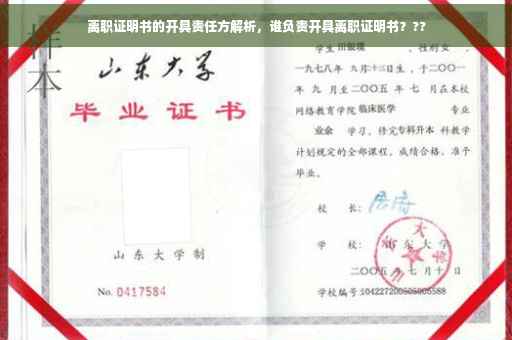 离职证明书的开具责任方解析，谁负责开具离职证明书？??
样本
山东大学
毕业证书
山东大学制
No. 0417584
学生 田景瑞 ，性别女，
一九七八年 九月十三日生，于二〇〇一
年 九 月至二〇〇五 年 七 月在本校
网络教育学院 临床医学 专业
业余 学习，修完专科升本 科教学
计划规定的全部课程，成绩合格，准予
毕业。
校 长：
学 校：山东大学
二〇〇五 年 七 月 十 日
学校编号:104227200505005588